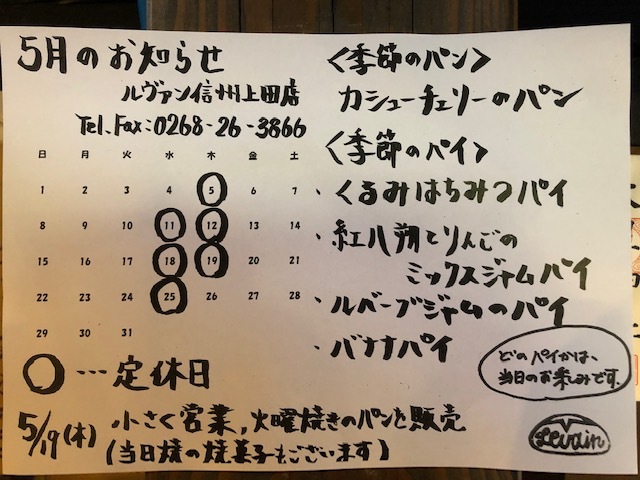 5月のお知らせ
ルヴァン信州上田店
Tel.Fax:0268-26-3866
日 月 火 水 木 金 土
1 2 3 4 5 6 7
8 9 10 11 12 13 14
15 16 17 18 19 20 21
22 23 24 25 26 27 28
29 30 31
○…定休日
5/19(木) 小さく営業,火曜焼きのパンを販売
(当日焼の焼菓子もございます)
<季節のパン>
カシューチェリーのパン
<季節のパイ>
・くるみはちみつパイ
・紅八朔とりんごの
ミックスジャムパイ
・ルバーブジャムのパイ
・バナナパイ
どのパイかは、
当日のお楽しみです.
Levain